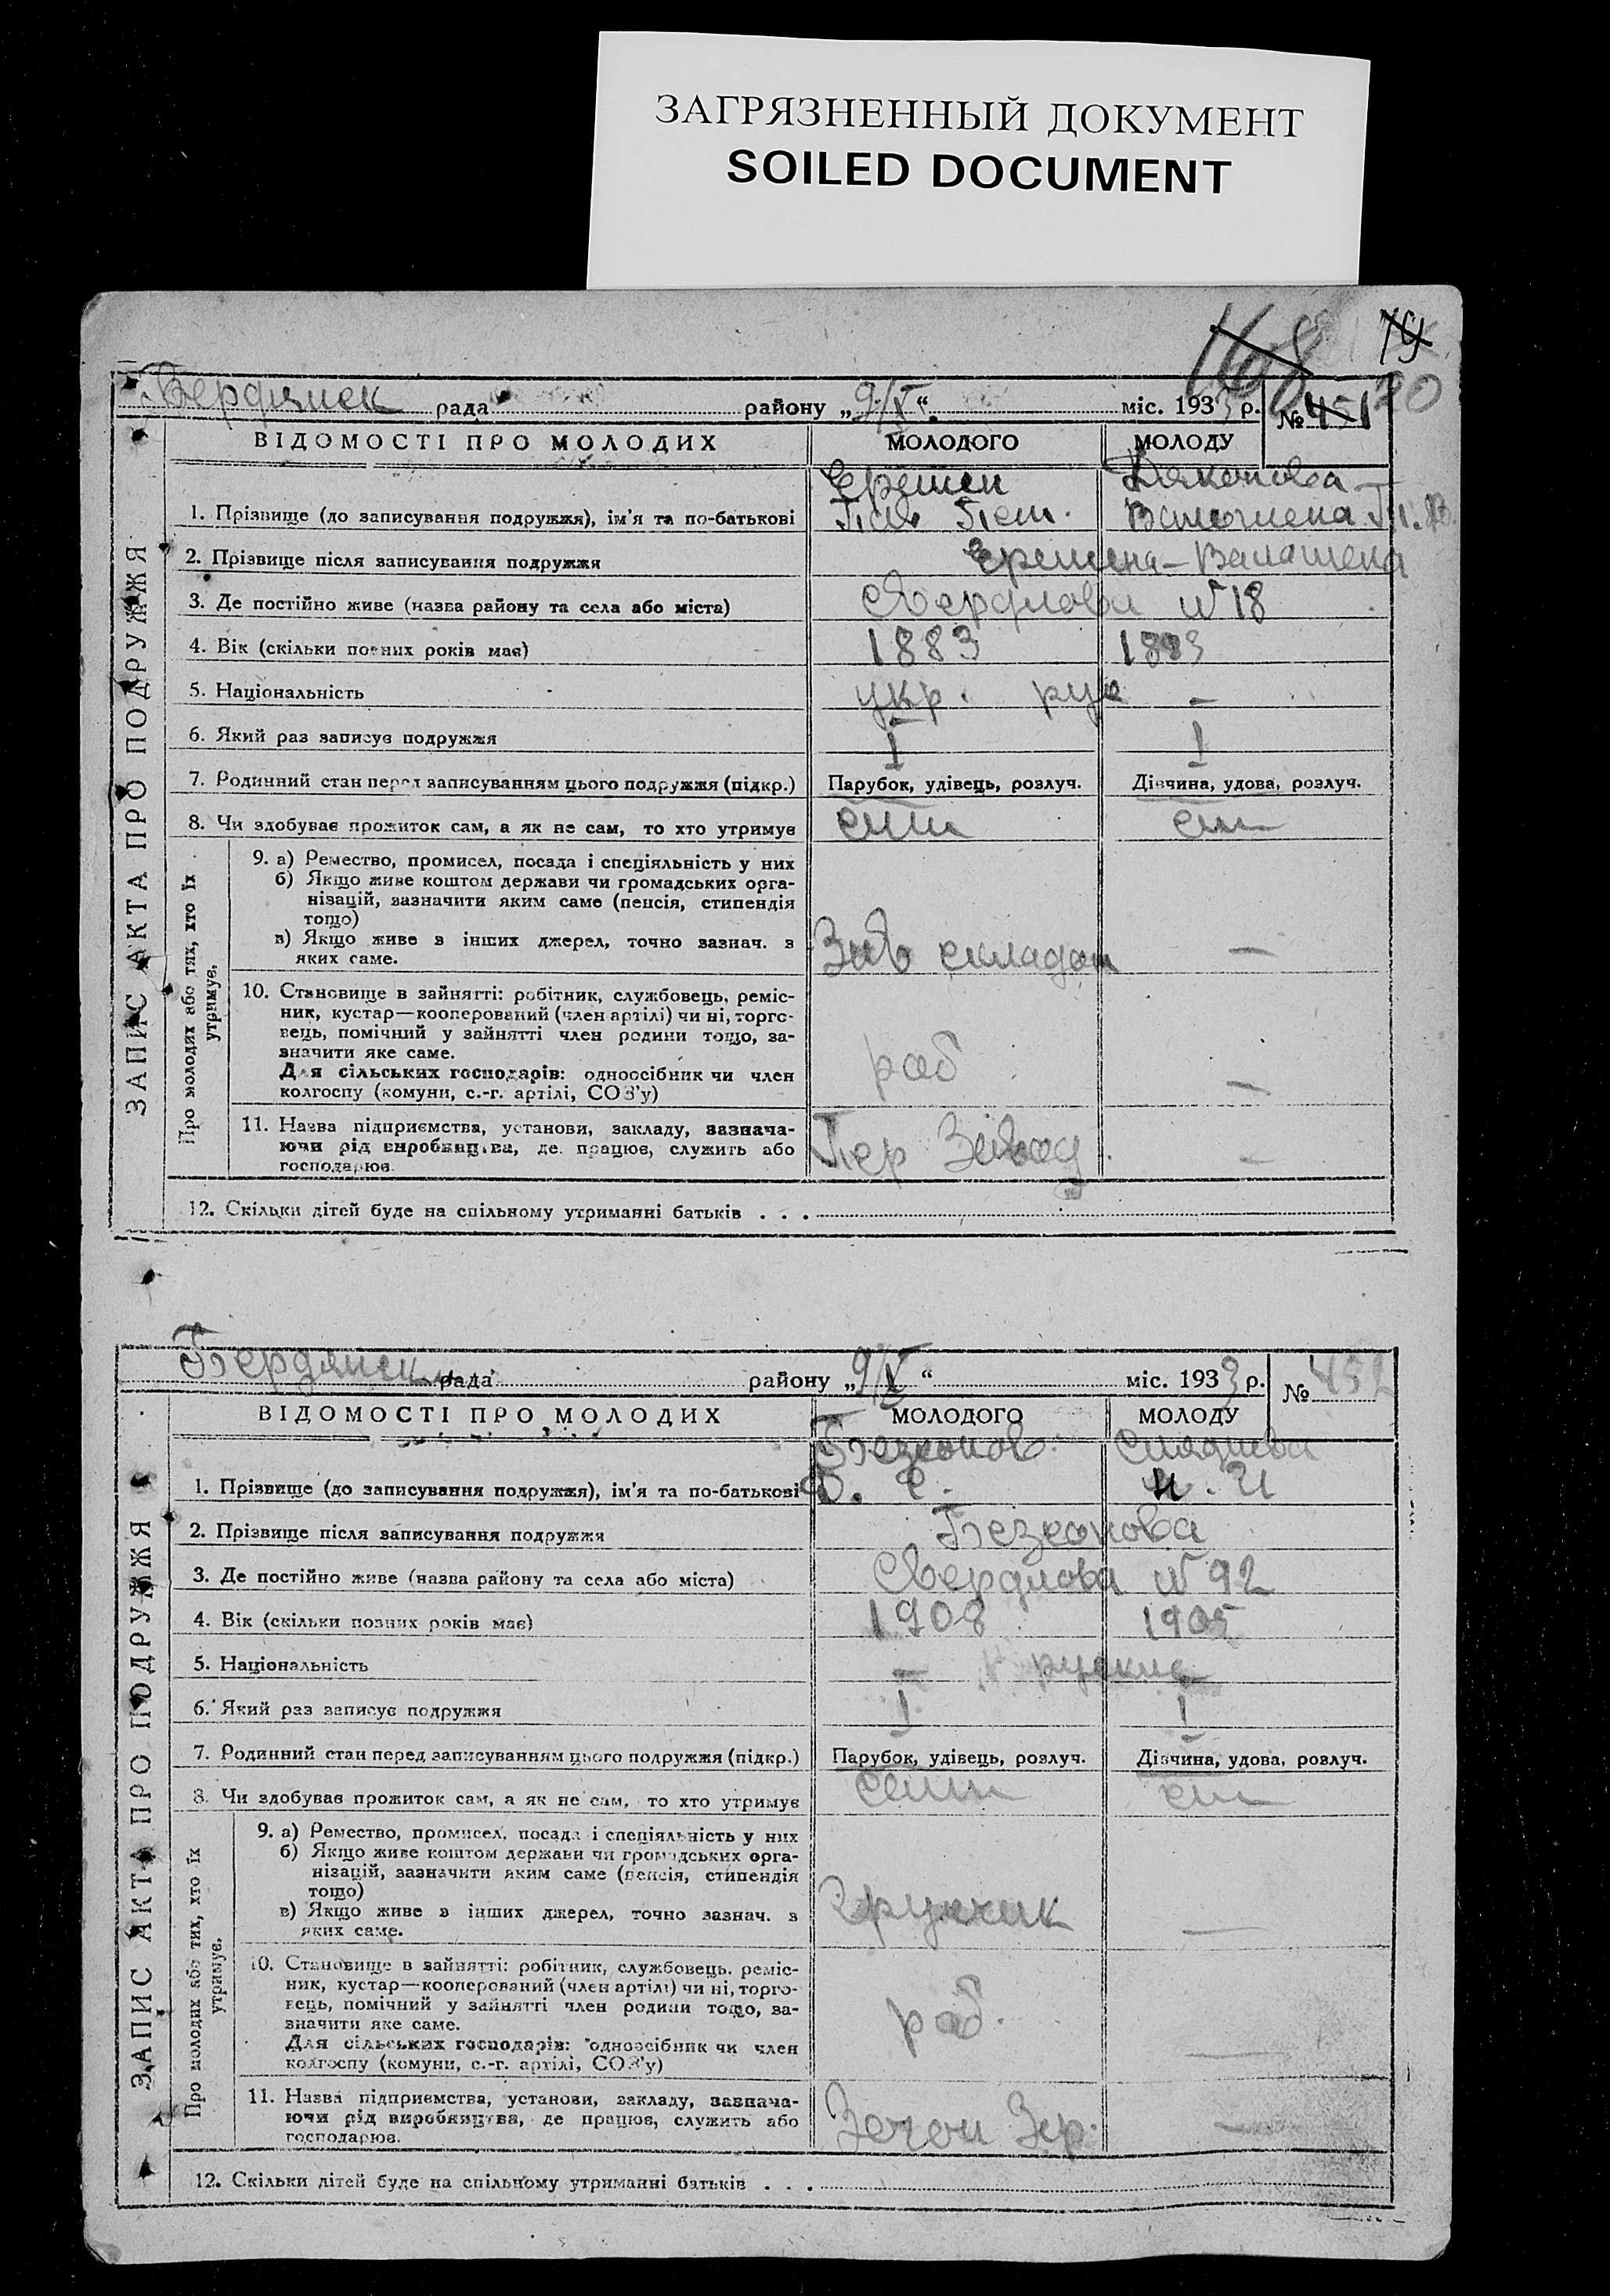 ЗАГРЯЗНЕННЫЙ ДОКУМЕНТ
SOILED DOCUMENT
Бердянск рада району „9/V“ міс. 1933 р. № 451
ВІДОМОСТІ ПРО МОЛОДИХ МОЛОДОГО МОЛОДУ
1. Прізвище (до записування подружжя), ім'я та по-батькові
2. Прізвище після записування подружжя
3. Де постійно живе (назва району та села або міста) Свердлова №18
4. Вік (скільки повних років має) 1883 1893
5. Національність укр. рус –
6. Який раз записує подружжя I I
7. Родинний стан перед записуванням цього подружжя (підкр.) Парубок, удівець, розлуч. Дівчина, удова, розлуч.
8. Чи здобуває прожиток сам, а як не сам, то хто утримує сам сам
9. а) Ремество, промисел, посада і спеціяльність у них
б) Якщо живе коштом держави чи громадських орга-
нізацій, зазначити яким саме (пенсія, стипендія
тощо)
в) Якщо живе з інших джерел, точно зазнач. з
яких саме.
Зав складом —
10. Становище в зайнятті: робітник, службовець, реміс-
ник, кустар—кооперований (член артілі) чи ні, торго-
вець, помічний у зайнятті член родини тощо, за-
значити яке саме.
Для сільських господарів: одноосібник чи член
колгоспу (комуни, с.-г. артілі, СОЗ'у)
раб —
11. Назва підприємства, установи, закладу, зазнача-
ючи рід виробництва, де працює, служить або
господарює.
Пер Завод —
12. Скільки дітей буде на спільному утриманні батьків . . .
ЗАПИС АКТА ПРО ПОДРУЖЖЯ
Про молодих або тих, хто їх
утримує.
Бердянск рада району „9/V“ міс. 1933 р. № 452
ВІДОМОСТІ ПРО МОЛОДИХ МОЛОДОГО МОЛОДУ
1. Прізвище (до записування подружжя), ім'я та по-батькові
2. Прізвище після записування подружжя
3. Де постійно живе (назва району та села або міста) Свердлова №92
4. Вік (скільки повних років має) 1908 1905
5. Національність – руские
6. Який раз записує подружжя I I
7. Родинний стан перед записуванням цього подружжя (підкр.) Парубок, удівець, розлуч. Дівчина, удова, розлуч.
8. Чи здобуває прожиток сам, а як не сам, то хто утримує сам сам
9. а) Ремество, промисел, посада і спеціяльність у них
б) Якщо живе коштом держави чи громадських орга-
нізацій, зазначити яким саме (пенсія, стипендія
тощо)
в) Якщо живе з інших джерел, точно зазнач. з
яких саме.
Грузчик —
10. Становище в зайнятті: робітник, службовець, реміс-
ник, кустар—кооперований (член артілі) чи ні, торго-
вець, помічний у зайнятті член родини тощо, за-
значити яке саме.
Для сільських господарів: одноосібник чи член
колгоспу (комуни, с.-г. артілі, СОЗ'у)
раб. —
11. Назва підприємства, установи, закладу, зазнача-
ючи рід виробництва, де працює, служить або
господарює.
—
12. Скільки дітей буде на спільному утриманні батьків . . .
ЗАПИС АКТА ПРО ПОДРУЖЖЯ
Про молодих або тих, хто їх
утримує.